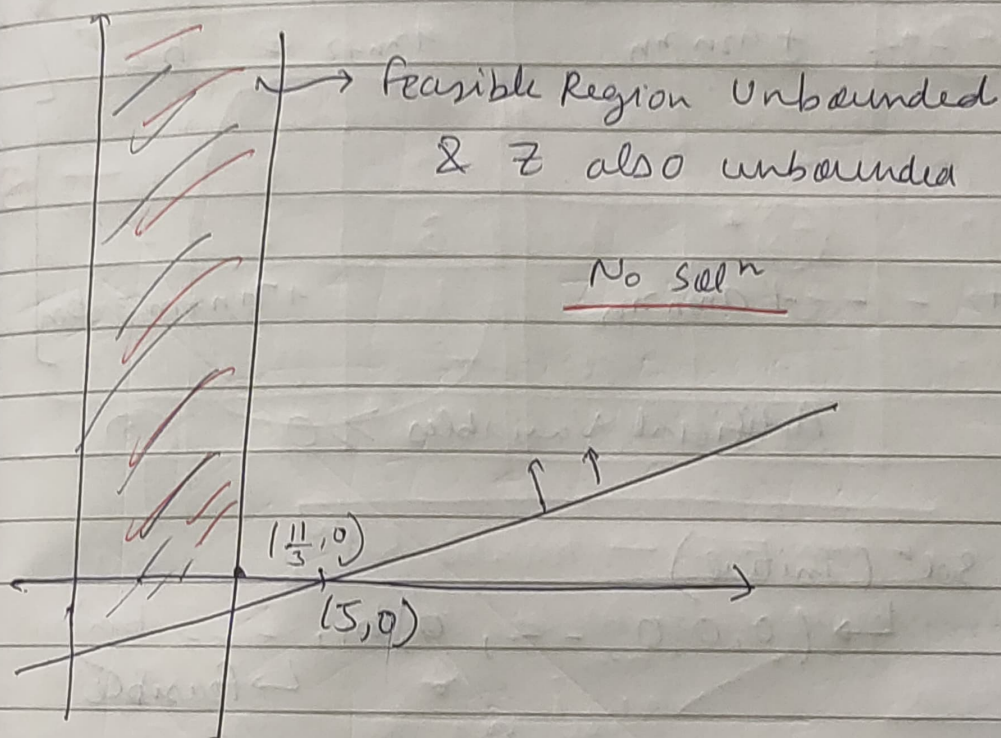 Feasible Region Unbounded
& Z also unbounded
No solⁿ
(11/3, 0)
(5,0)